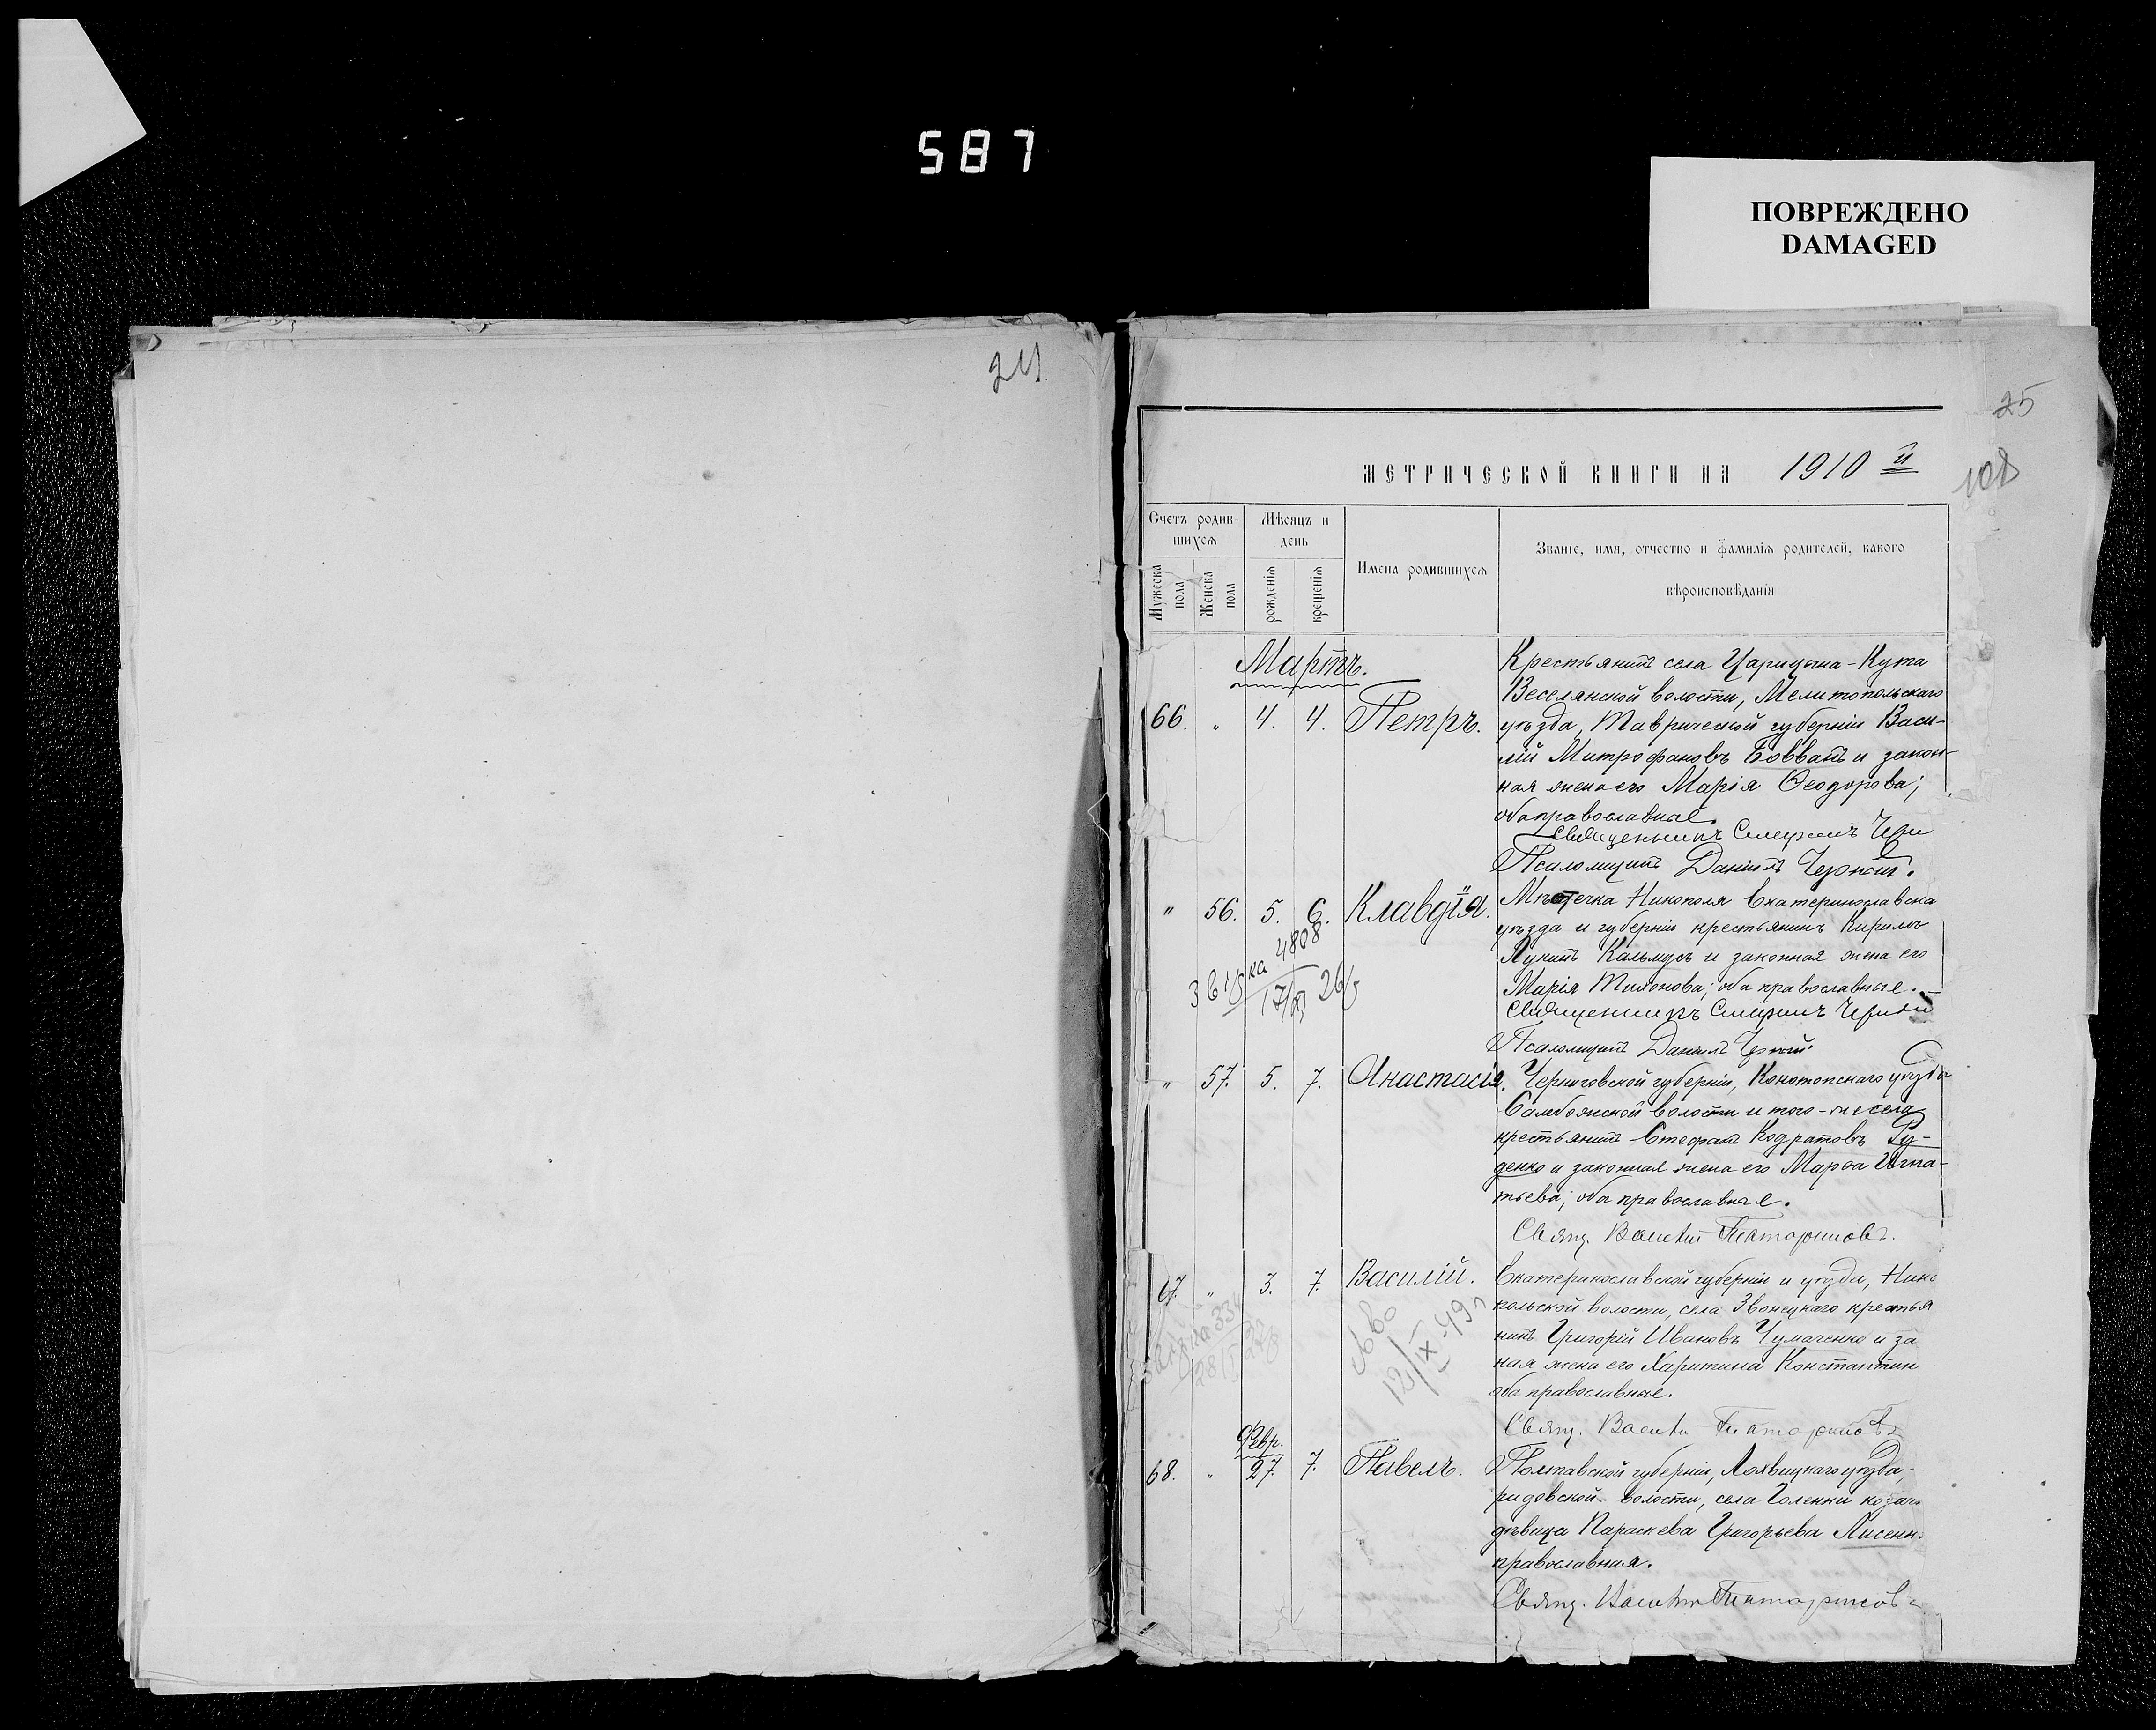 587
ПОВРЕЖДЕНО
DAMAGED
24
25
108
МЕТРИЧЕСКОЙ КНИГИ НА 1910 й
Счетъ родив-
шихся
Мѣсяцъ и
день
Имена родившихся
Званіе, имя, отчество и фамилія родителей, какого
вѣроисповѣданія
Мужеска
пола
Женска
пола
рожденія
крещенія
Мартъ.
66. " 4. 4. Петръ.
Крестьянинъ села Царицына-Кута
Веселянской волости, Мелитопольскаго
уѣзда, Таврической губерніи Васи-
лій Митрофановъ Бовванъ и закон-
ная жена его Марія Ѳеодорова;
оба православные.
Священникъ Симеонъ Черн
Псаломщикъ Даніилъ Черный.
" 56. 5. 6. Клавдія.
Мѣстечка Никополя Екатеринославска
уѣзда и губерніи крестьянинъ Кирилъ
Лукинъ Кальмусъ и законная жена его
Марія Тихонова; оба православные.
Священникъ Симеонъ Черный
Псаломщикъ Даніилъ Черный.
4808
" 57. 5. 7. Анастасія.
Черниговской губерніи, Конотопскаго уѣзда
Самбоянской волости и того-же села
крестьянинъ Стефанъ Кодратовъ Ру-
денко и законная жена его Марѳа Игна-
тьева; оба православные.
Свящ. Василій Татариновъ.
67. " 3. 7. Василій.
Екатеринославской губерніи и уѣзда, Нико
польской волости, села Звонецкаго крестья
нинъ Григорій Ивановъ Чумаченко и за
ная жена его Харитина Константин
оба православные.
12/IX-49г
Свящ. Василій Татариновъ
Февр.
68. " 27. 7. Павелъ.
Полтавской губерніи, Лохвицкаго уѣзда,
ридовской волости, села Голенки козач
дѣвица Параскева Григорьева Лисенк
православная.
Свящ. Василій Татариновъ